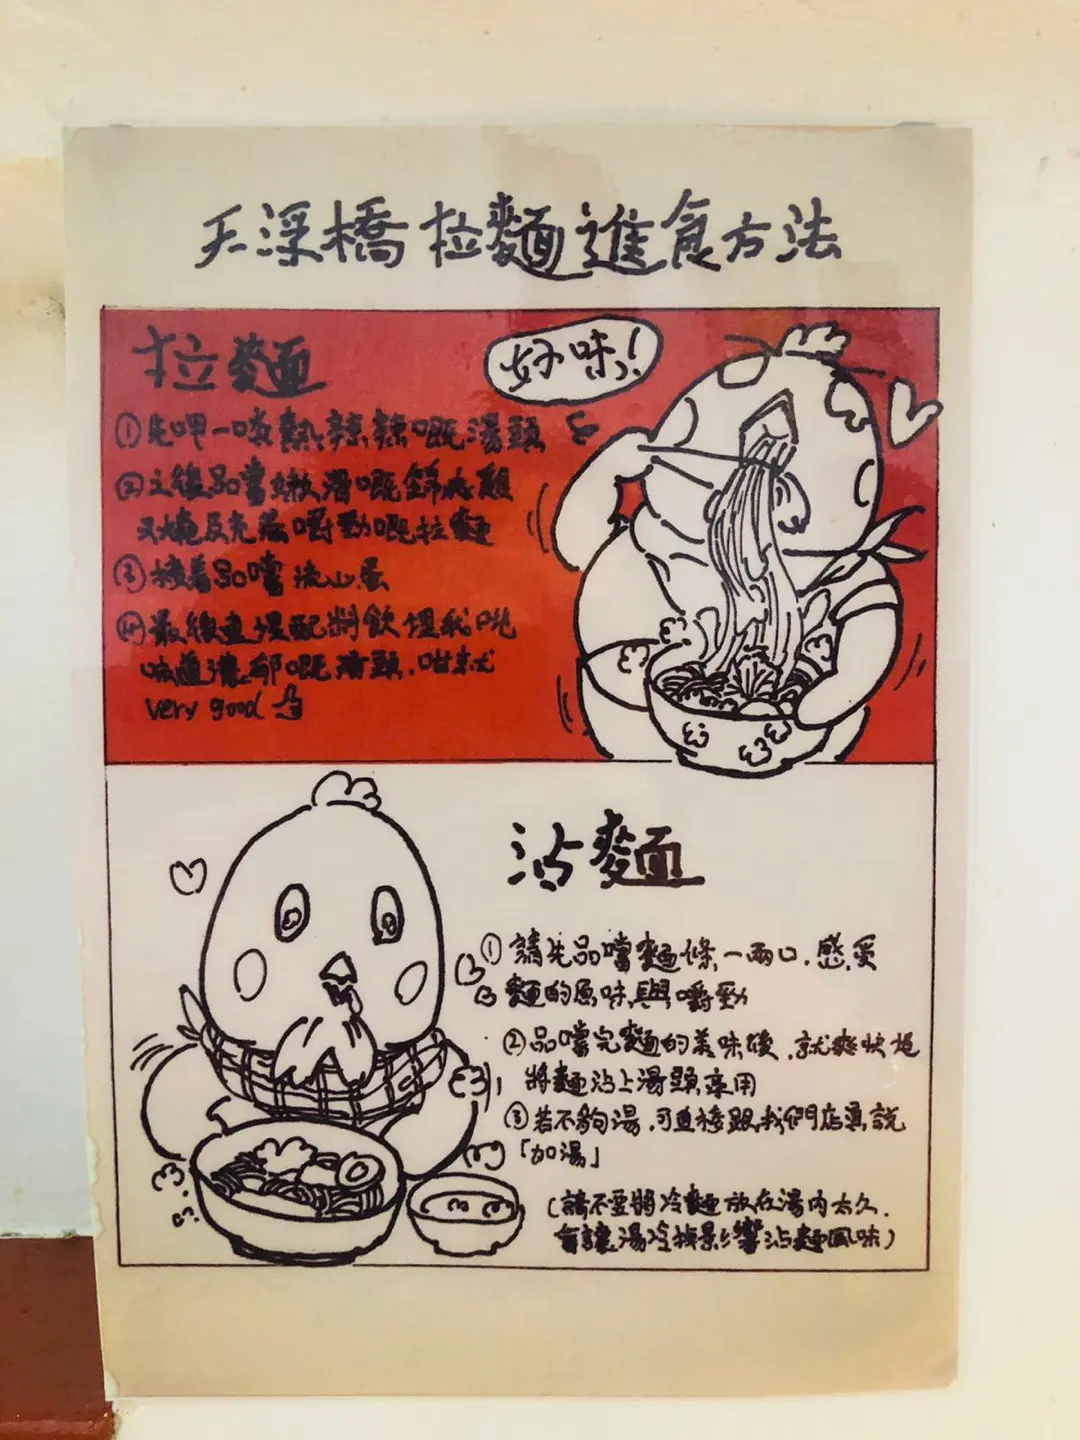 天深橋拉麵進食方法
拉麵
好味!
①先呷一啖熱辣辣嘅湯頭
②之後品嚐嫩滑嘅鮮味雞
叉燒及充滿嚼勁嘅拉麵
③接着品嚐流心蛋
④最後連埋配料飲埋我哋
味道濃郁嘅湯頭.咁就
very good
沾麵
①請先品嚐麵條,一兩口.感受
麵的原味與嚼勁
②品嚐完麵的美味後.就爽快地
將麵沾上湯頭享用
③若不夠湯.可直接跟我們店員說
「加湯」
(請不要將冷麵放在湯內太久.
會讓湯冷掉影響沾麵風味)